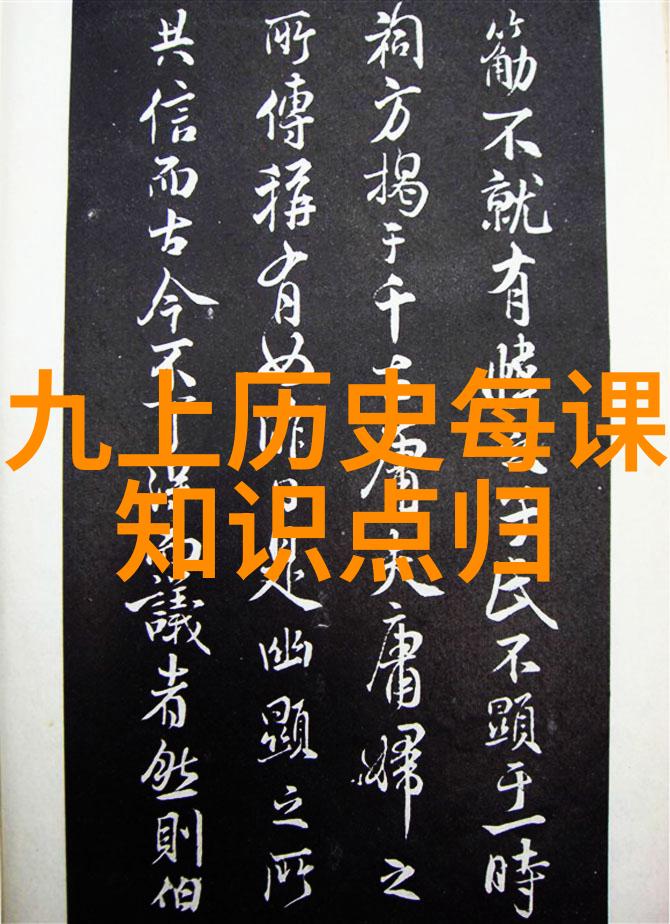 九上历史每课
知识点归
不就有民不顯于一時
祠方揭于千庸夫庸婦之
所傳稱有如昨日是幽顯之所
共信而古今不議者然則伯